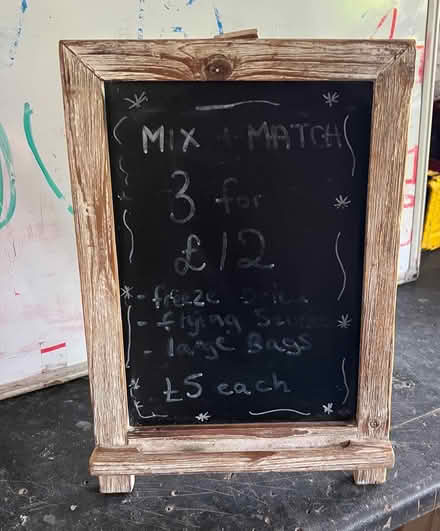 MIX + MATCH
3 for
£12
- freeze Dried
- flying Saucers
- large Bags
£5 each